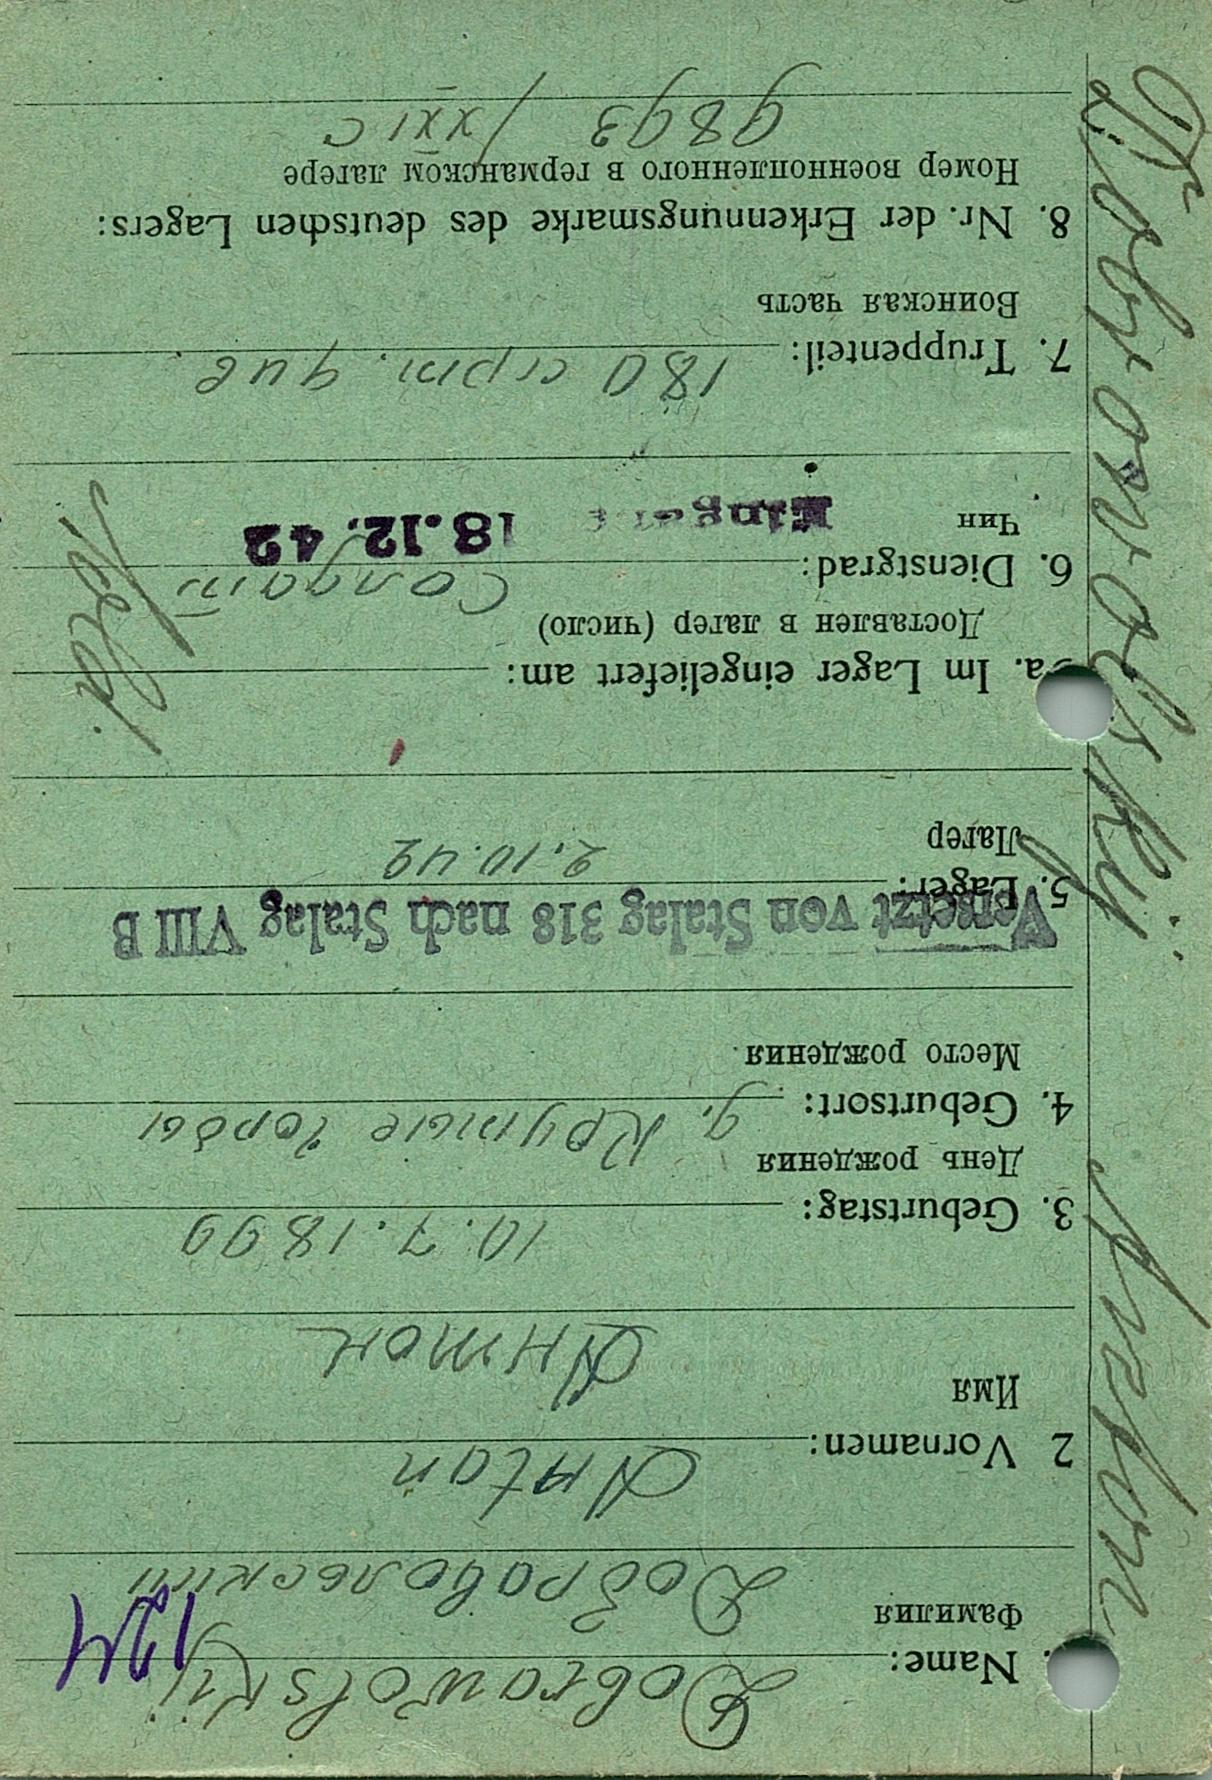 Dobrowolskij Anton
1. Name: Dobrawolskij
Фамилия Добравольский
124
2 Vornamen: Antan
Имя Антон
3. Geburtstag: 10.7.1899
День рождения
4. Geburtsort: д. Крутые Горбы
Место рождения
Versetzt von Stalag 318 nach Stalag VIII B
5. Lager: 2.10.42
Лагер
a. Im Lager eingeliefert am:
Доставлен в лагер (число)
6. Dienstgrad: Солдат
Чин
18.12.42
7. Truppenteil: 180 арт. див.
Воинская часть
8. Nr. der Erkennungsmarke des deutschen Lagers:
Номер военнопленного в германском лагере
9893 / XXI C